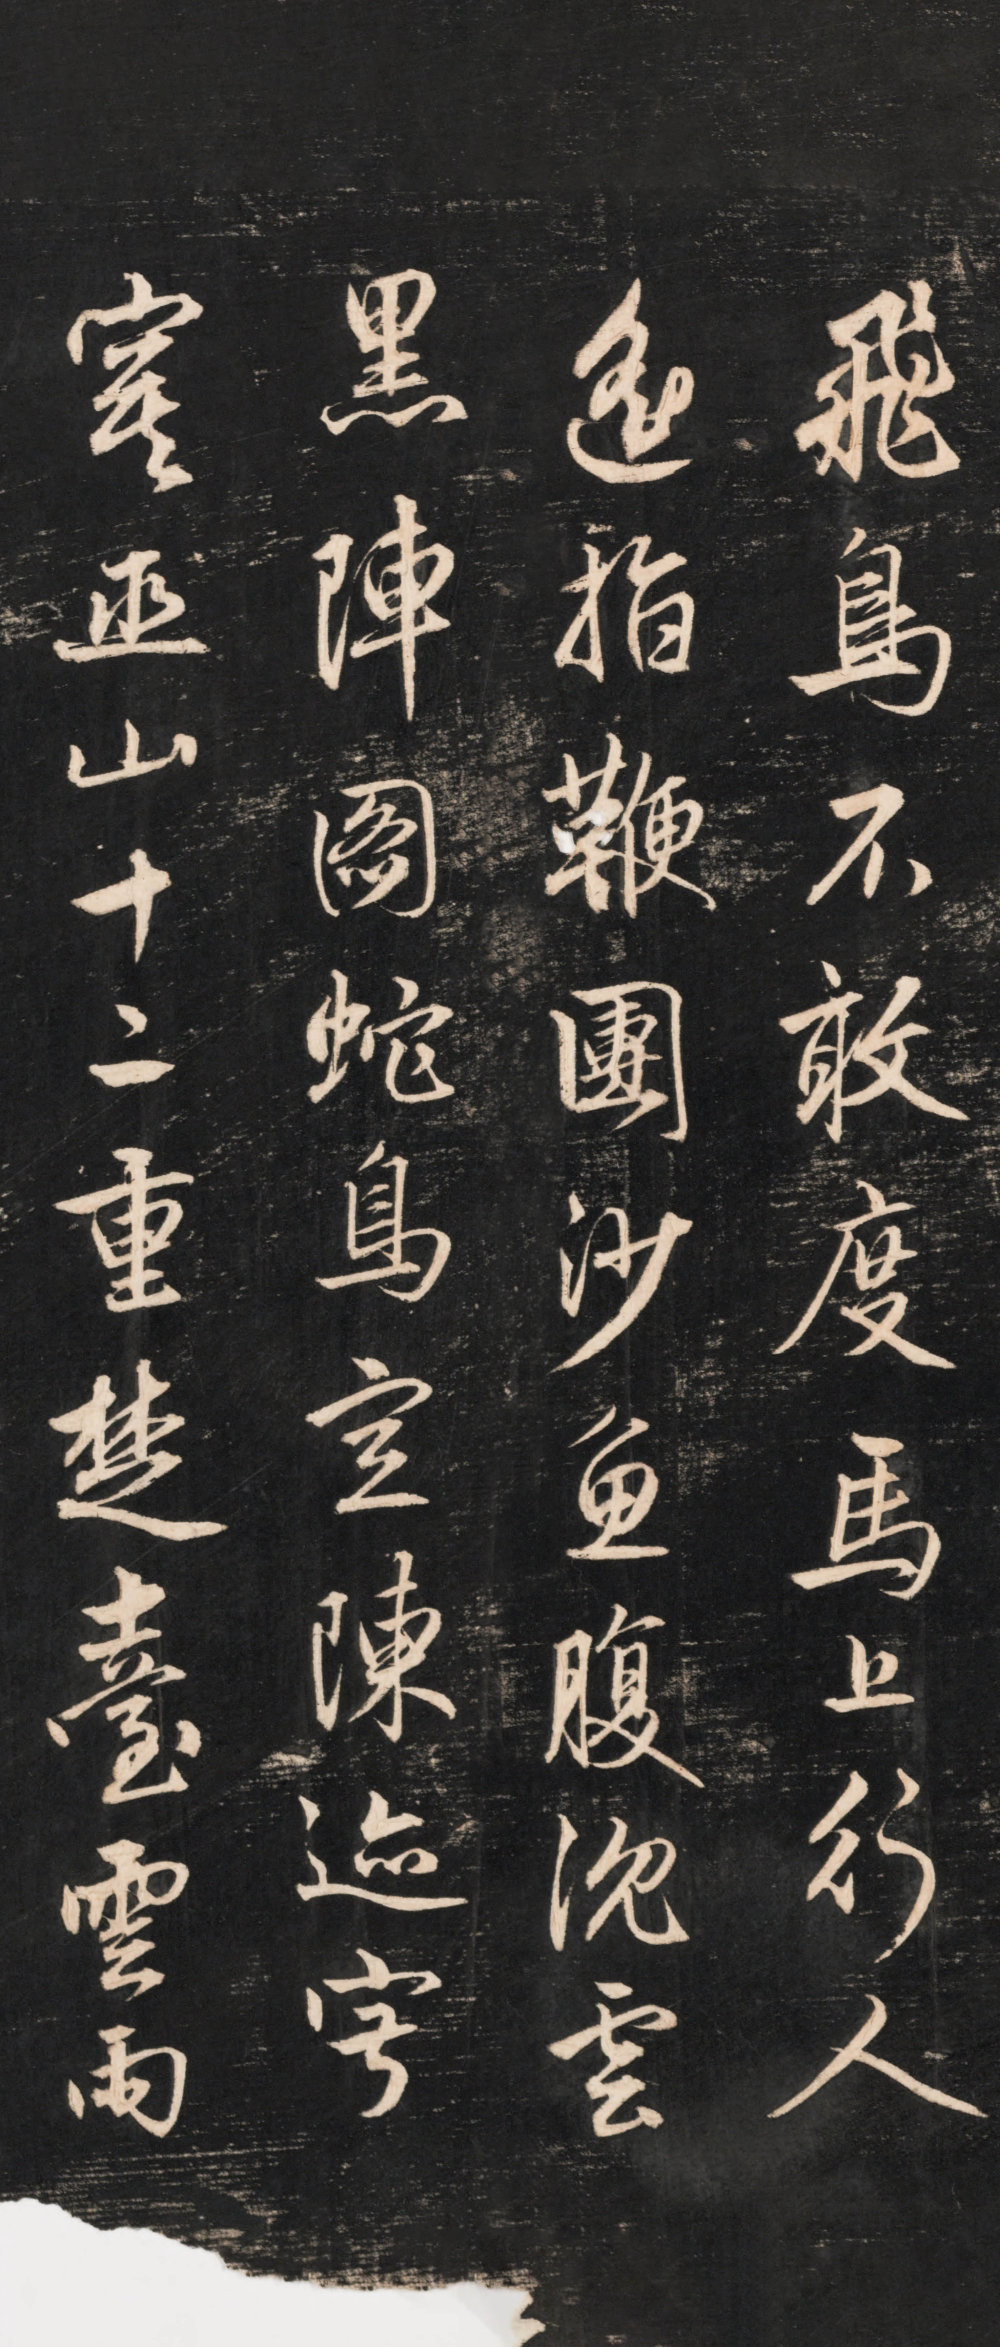 飛鳥不敢度馬上行人
遙指鞭團沙魚腹沉雲
黑陣圖蛇鳥空陳迹寧
寞巫山十二重楚臺雲雨